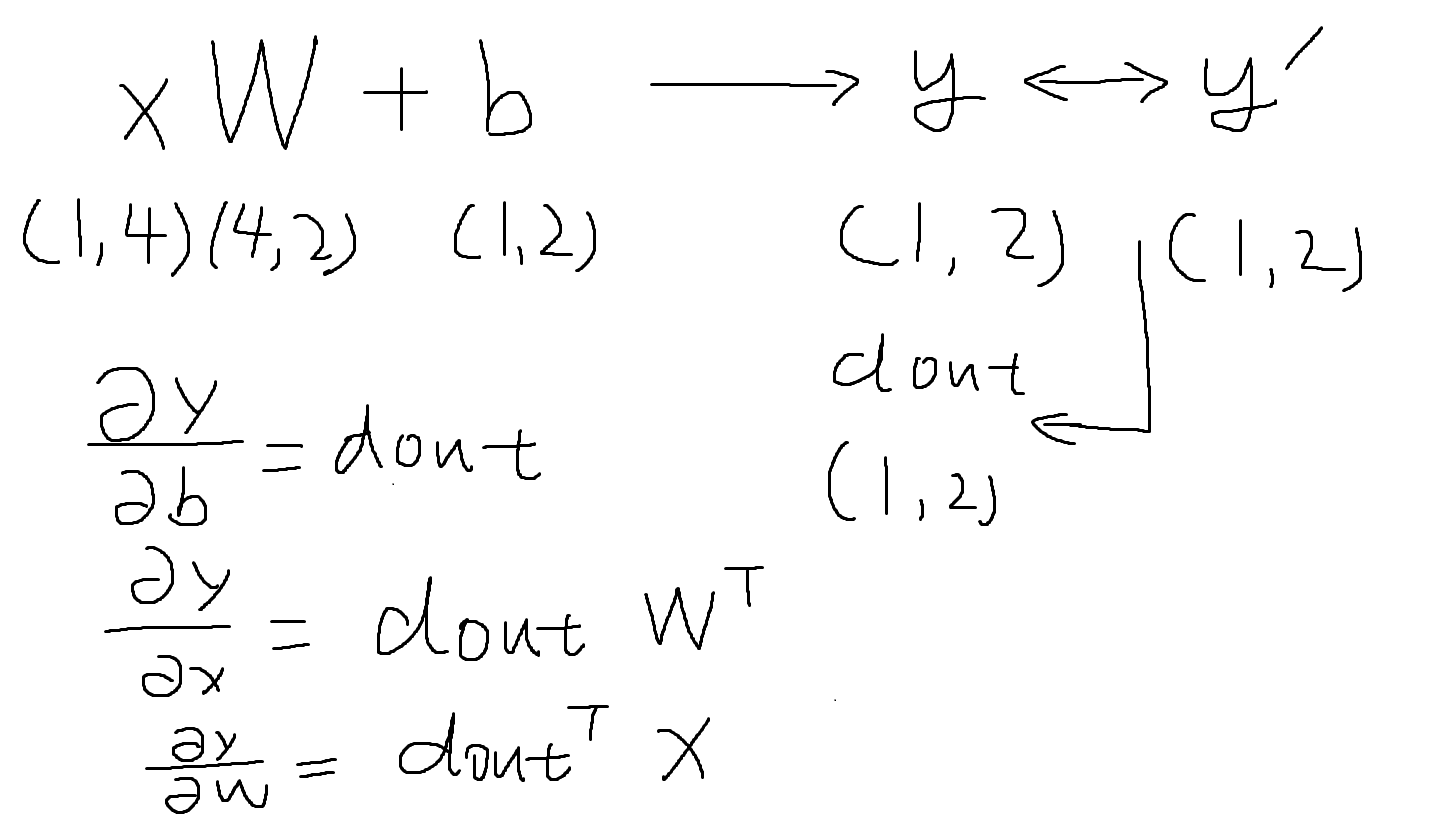 xW + b → y ↔ y′
(1,4)(4,2) (1,2) (1,2) (1,2)
dout
(1,2)
∂y/∂b = dout
∂y/∂x = dout Wᵀ
∂y/∂W = doutᵀ x